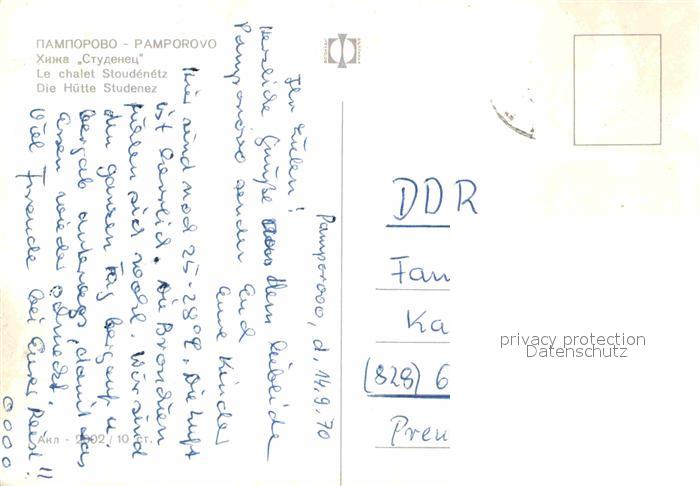 ПАМПОРОВО - PAMPOROVO
Хижа „Студенец"
Le chalet Stoudénétz
Die Hütte Studenez
Pamporovo, d. 14.9.70
Ihr Lieben!
Herzliche Grüße aus dem
Pamporovo senden Euch
Eure Kinder
Hier sind noch 25-28°C. Die Luft
ist herrlich. Die Bronchien
fühlen sich wohl. Wir sind
den ganzen Tag bergauf u.
bergab unterwegs, damit das
Essen wieder schmeckt.
Viel Freude bei Eurer Reise!!
0000
Акл - 2002 / 10 ст.
DDR
Fam
Ka
(828) 6
Preu
privacy protection
Datenschutz